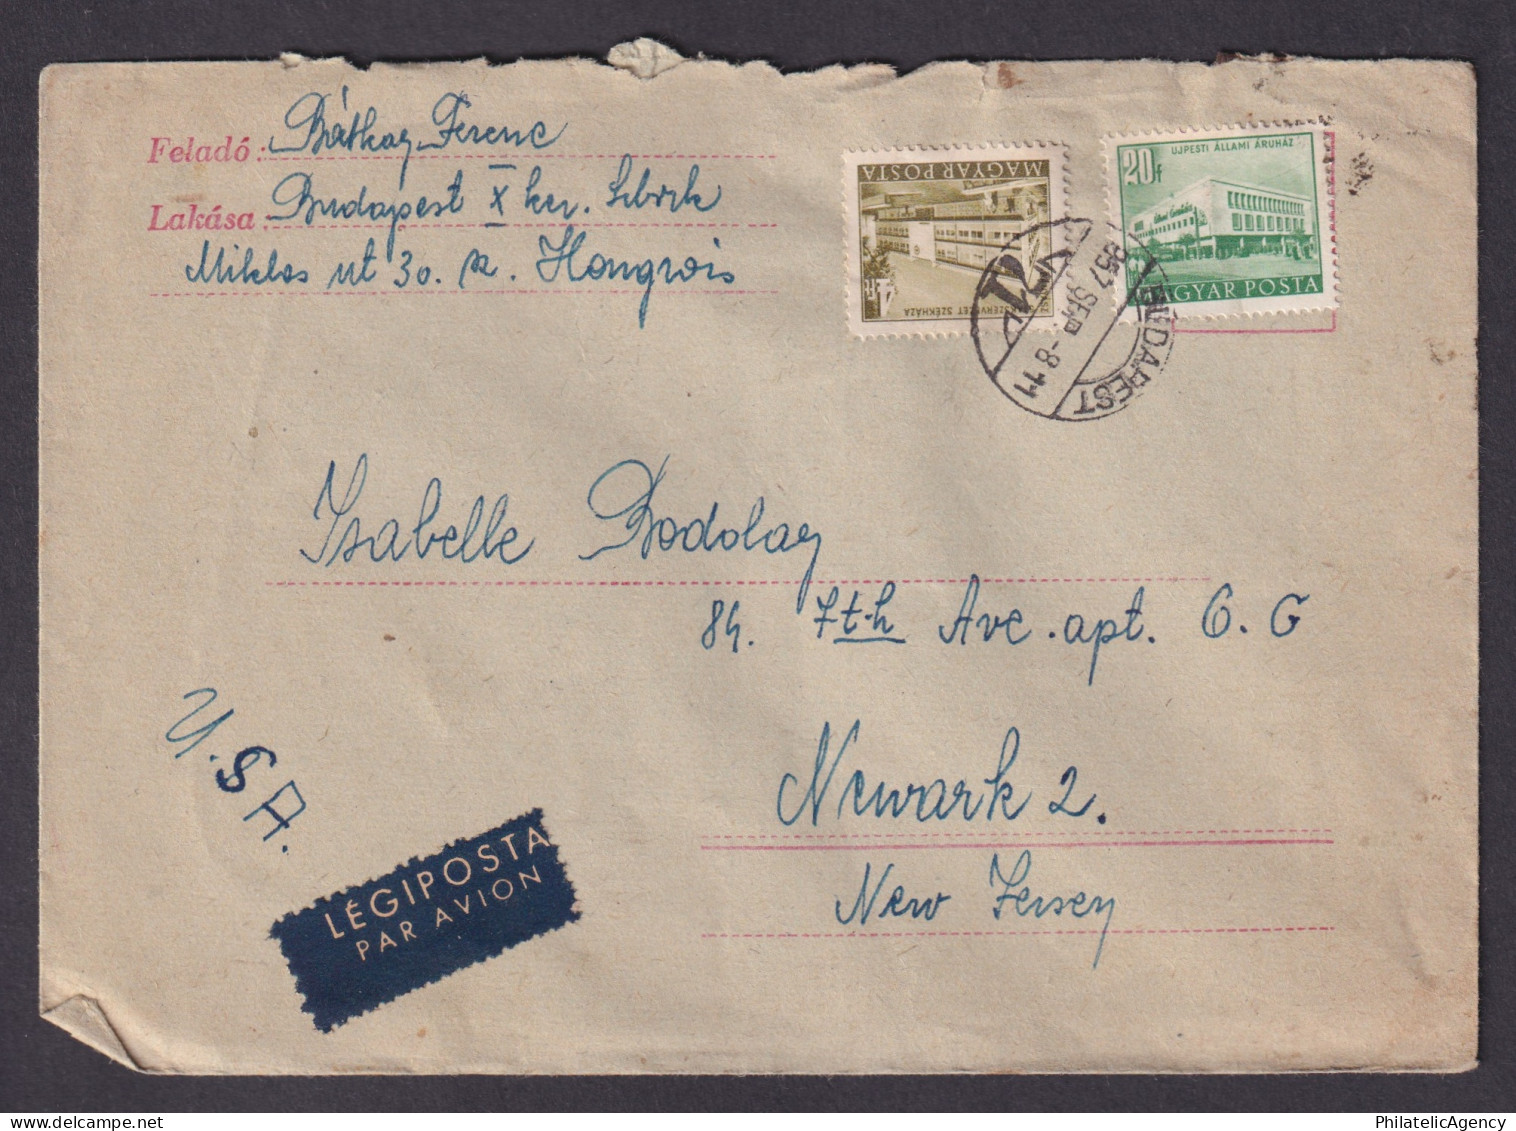 Feladó: Bátkay Ferenc
Lakása: Budapest X ker.
Miklos ut 30. sz. Hongrois
MAGYAR POSTA
SZÉKHÁZA
20f
UJPESTI ÁLLAMI ÁRUHÁZ
MAGYAR POSTA
BUDAPEST
957 SEP -8.11
Isabelle Bodolay
84. 7th Ave. apt. 6. G
Newark 2.
New Jersey
U.S.A.
LÉGIPOSTA
PAR AVION
PhilatelicAgency